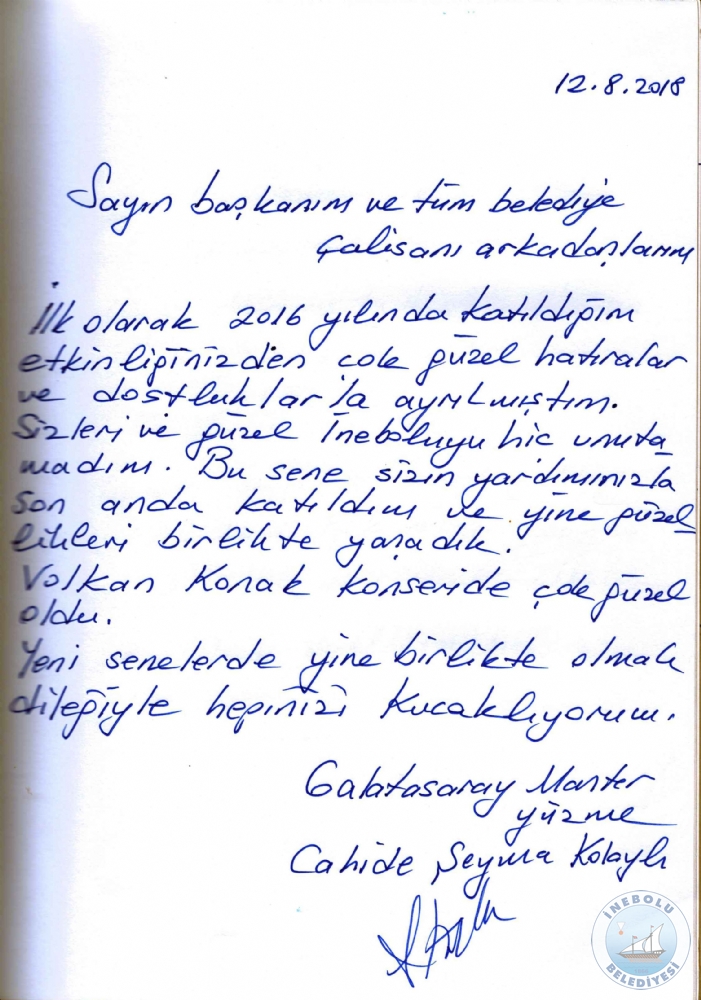 12.8.2018
Sayın başkanım ve tüm belediye
çalisanı arkadaşlarım
İlk olarak 2016 yılında katıldığım
etkinliğinizden çok güzel hatıralar
ve dostluklarla ayrılmıştım.
Sizleri ve güzel İneboluyu hic unuta
madım. Bu sene sizin yardımınızla
son anda katıldım ve yine güzel
likleri birlikte yaşadık.
Volkan Konak konseride çok güzel
oldu.
Yeni senelerde yine birlikte olmak
dileğiyle hepinizi kucaklıyorum.
Galatasaray Master
yüzme
Cahide Şeyma Kolaylı
İNEBOLU
BELEDİYESİ